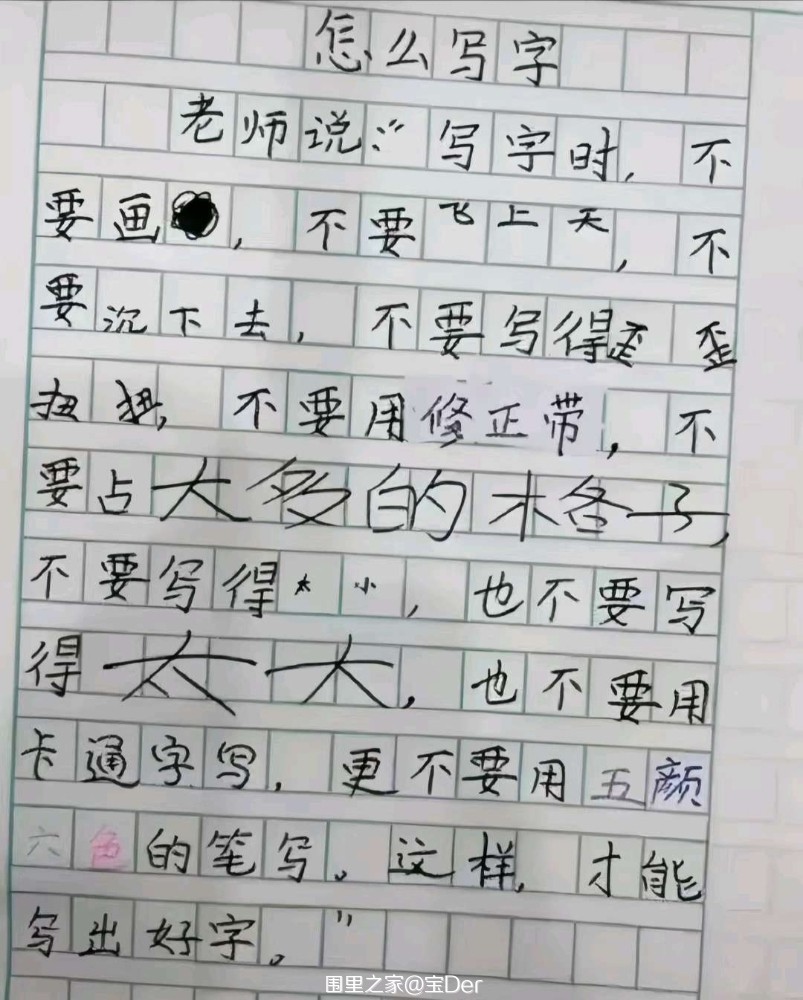 怎么写字
老师说:“写字时,不
要画,不要飞上天,不
要沉下去,不要写得歪歪
扭扭,不要用修正带,不
要占太多的格子,
不要写得太小,也不要写
得太大,也不要用
卡通字写,更不要用五颜
六色的笔写。这样,才能
写出好字。”
围里之家@宝Der